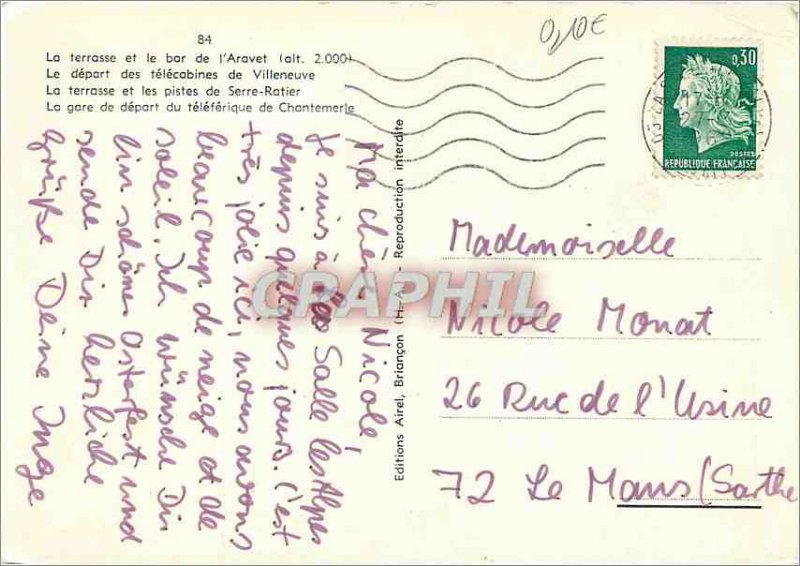 0,10€
84
La terrasse et le bar de l'Aravet (alt. 2.000)
Le départ des télécabines de Villeneuve
La terrasse et les pistes de Serre-Ratier
La gare de départ du téléférique de Chantemerle
0,30
POSTES
REPUBLIQUE FRANÇAISE
Ma chère Nicole,
je suis à Salle les Alpes
depuis quelques jours. C'est
très jolie ici, nous avons
beaucoup de neige et de
soleil. Ich wünsche Dir
ein schönes Osterfest und
sende Dir herzliche
Grüße Deine Inge
Editions Airel, Briançon (H.-A.) - Reproduction interdite
Mademoiselle
Nicole Monat
26 Rue de l'Usine
72 Le Mans (Sarthe
CPAPHIL